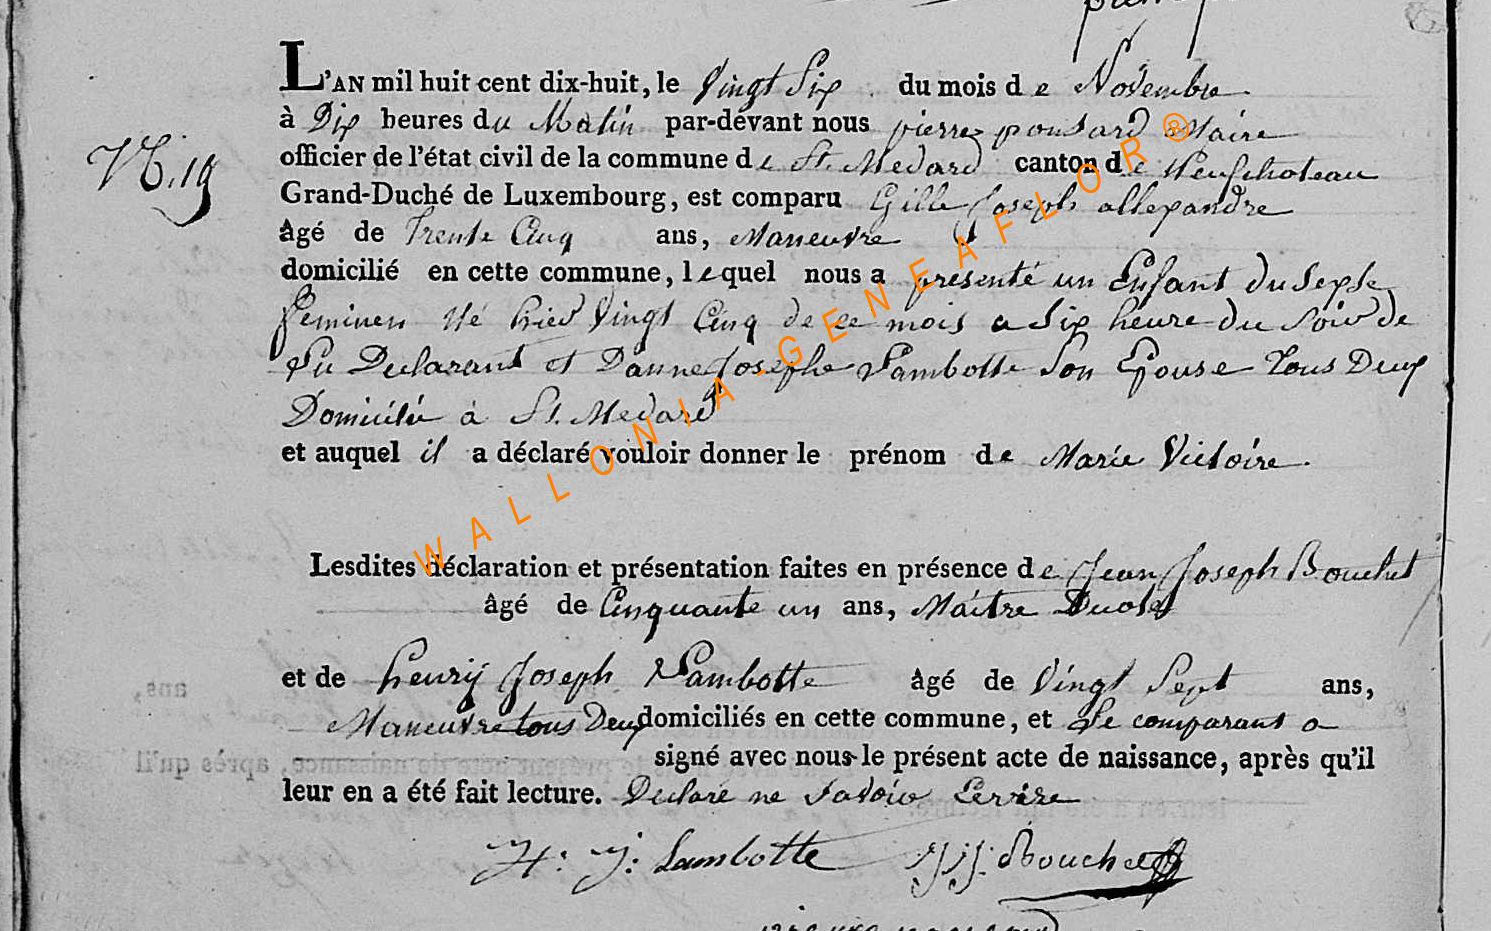 L'AN mil huit cent dix-huit, le Vingt Six du mois de Novembre
à Dix heures du Matin par-devant nous pierre ponsard Maire
officier de l'état civil de la commune de St. Medard canton de Neufchateau
N.19
Grand-Duché de Luxembourg, est comparu Gille Joseph allexandre
âgé de Trente Cinq ans, Maneuvre
domicilié en cette commune, lequel nous a presenté un Enfant du Sexse
feminen Né hier Vingt Cinq de ce mois a Six heure du Soir de
Lui Declarant et Danne Josephe Lambotte Son Epouse Tous Deux
Domicilié à St. Medard
et auquel il a déclaré vouloir donner le prénom de Marie Victoire.
WALLONIA-GENEAFLOR®
Lesdites déclaration et présentation faites en présence de Jean Joseph Bouchet
âgé de Cinquante un ans, Maitre
et de henrij Joseph Lambotte âgé de Vingt Sept ans,
Maneuvre tous Deux domiciliés en cette commune, et Le comparant a
signé avec nous le présent acte de naissance, après qu'il
leur en a été fait lecture. Declaré ne Savoir Ecrire
H: J: Lambotte J J. Bouchet